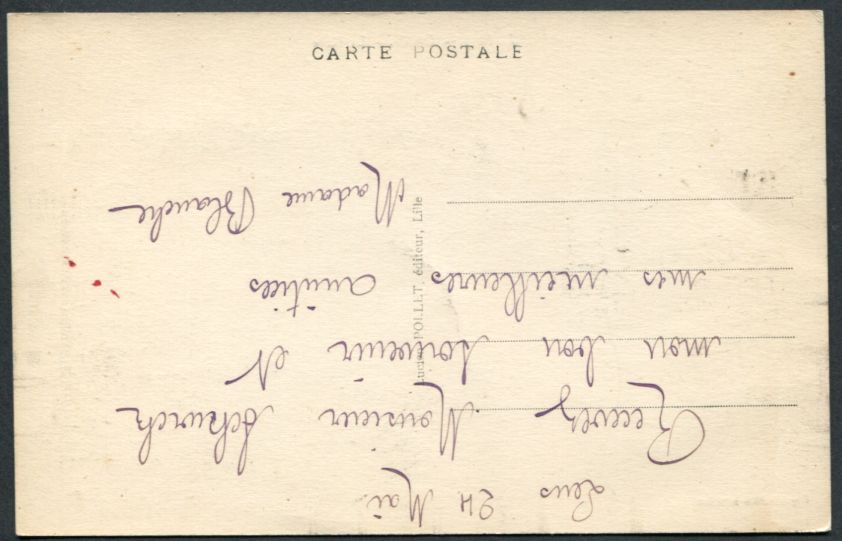 CARTE POSTALE
Lucien POLLET, éditeur, Lille
Lens 24 Mai
Recevez Monsieur Schurch
mon bon souvenir et
mes meilleures amitiés
Madame Blanche